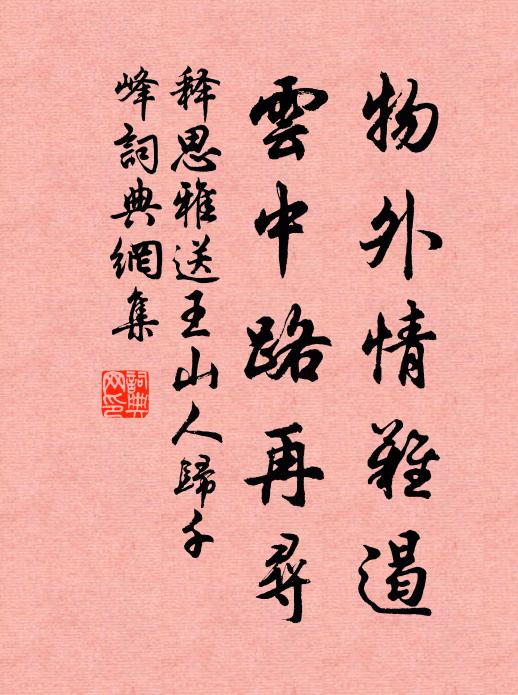 物外情難遏
雲中路再尋
釋思雅送王山人歸千
峰詞典網集
詞典
网印